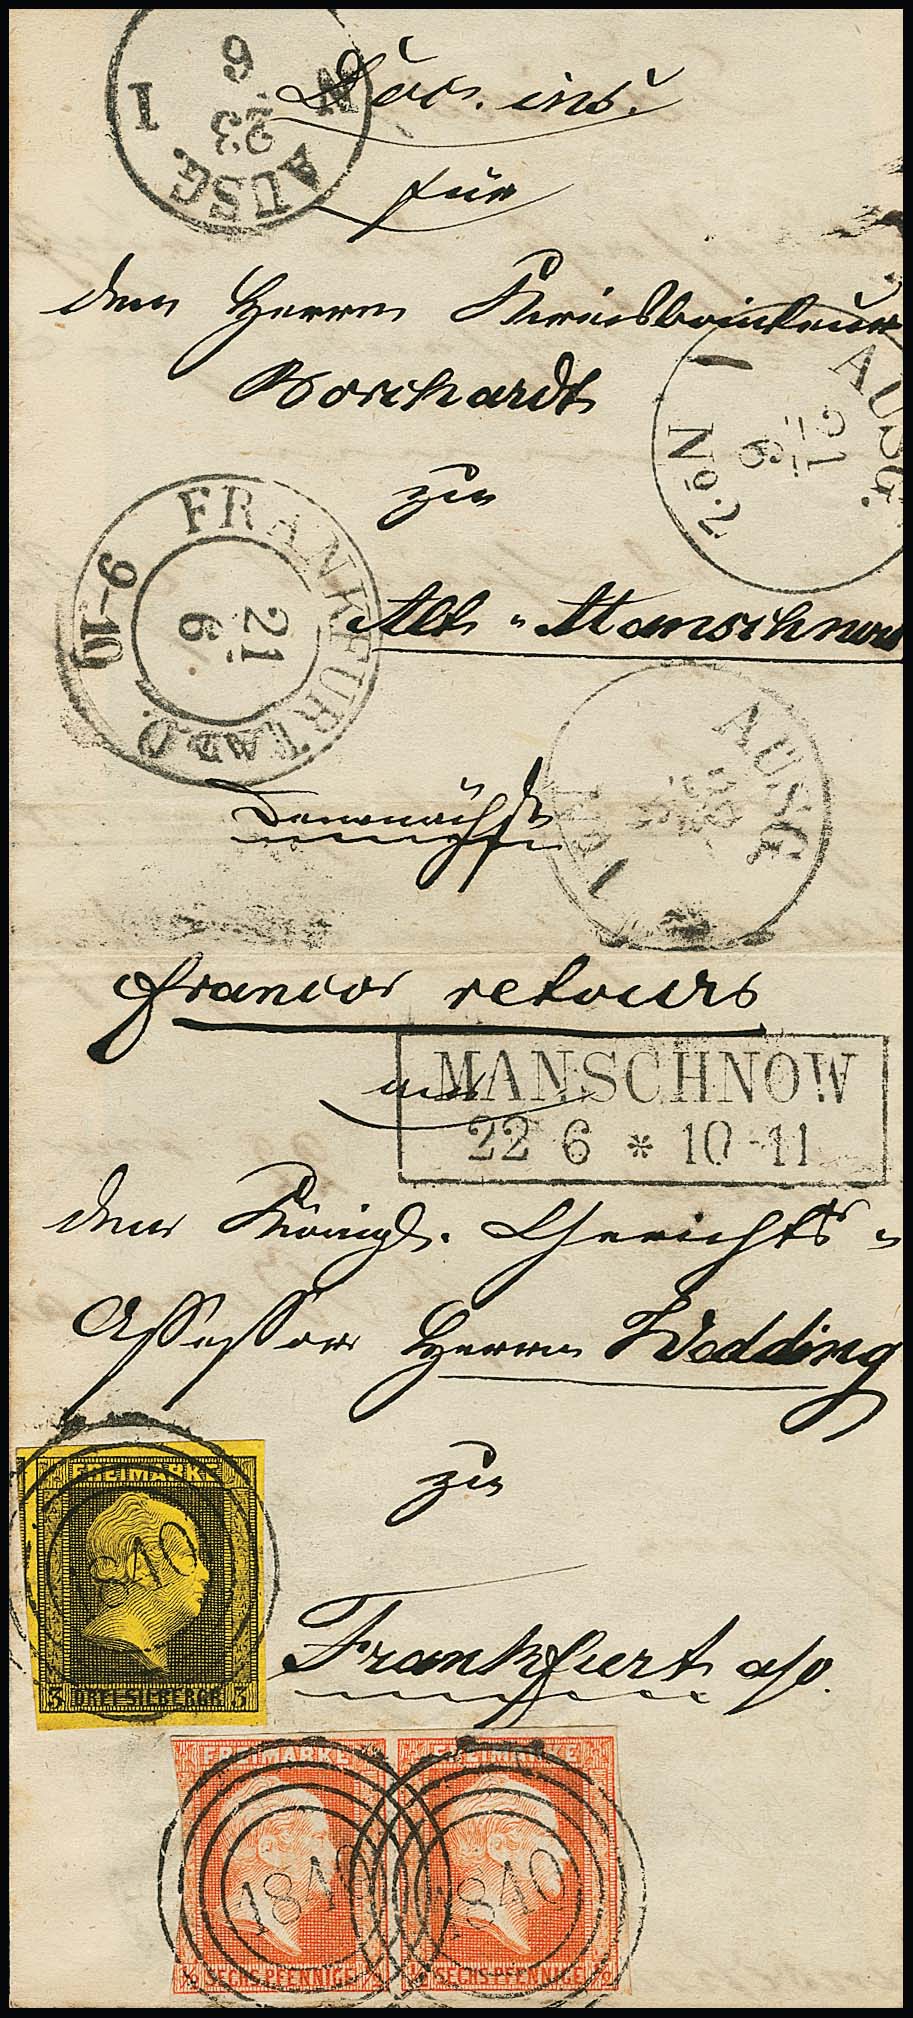 6
23
I
AUSG.
N
Doc. ins.
für
den Herrn Kreisboniteur
Borchardt
zu
AUSG.
21
6
I
No. 2
FRANKFURT A.D.O.
21
6
9-10
Alt-Manschnow
AUSG
No I
Demnächst
franco retour
an
MANSCHNOW
22 6 * 10-11
den Königl. Gerichts-
Assessor Herrn Wedding
zu
FREIMARKE
840
3 DREI SILBERGR. 3
Frankfurt a/o.
FREIMARKE FREIMARKE
1840 1840
½ SECHS PFENNIGE ½ ½ SECHS-PFENNIGE ½